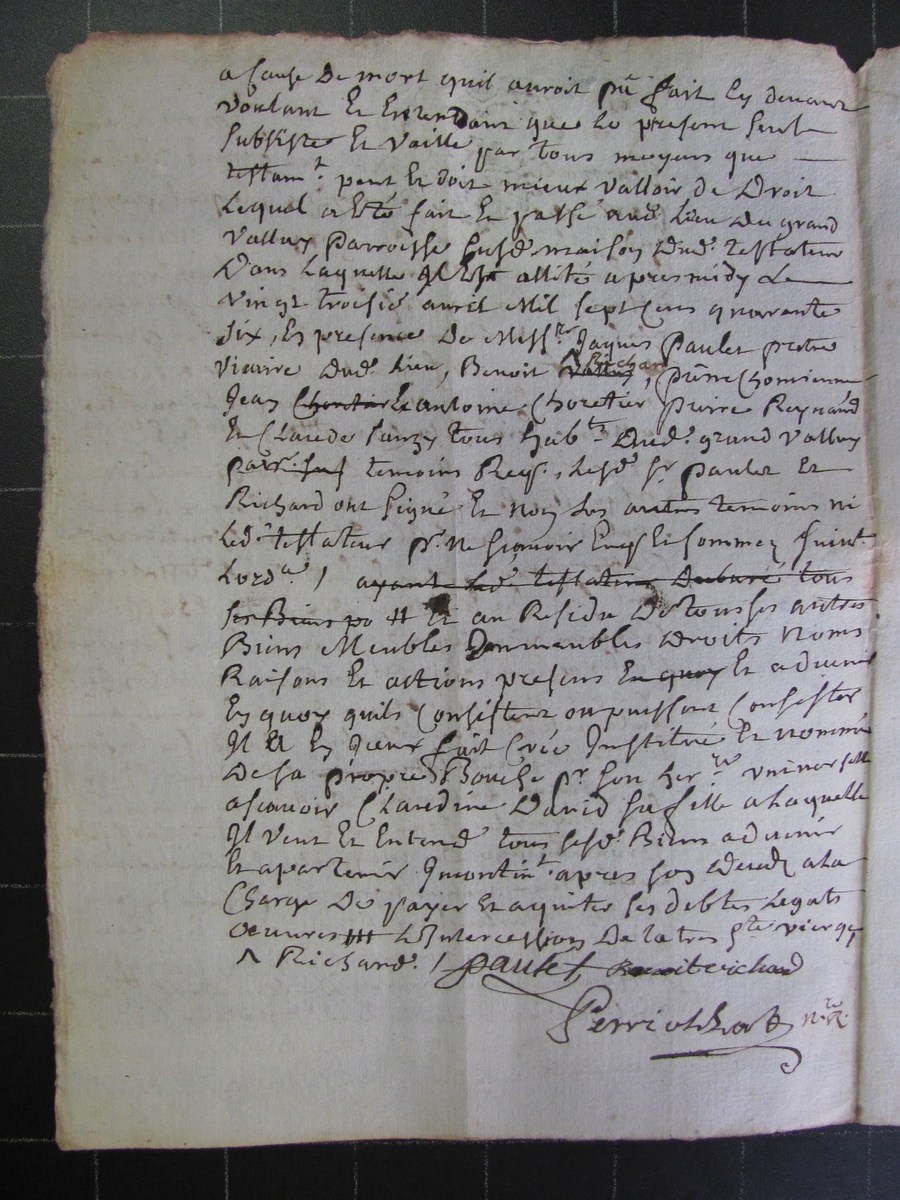 a cause de mort quil auroit pu fait cy devant
voulant Et Entendant que le present seul
subsiste Et vaille par tous moyens que
testamt. peut Et doit mieux valloir de Droit
Lequel a Esté fait Et passé aud. lieu du grand
valluy parroisse susd. maison dud. testateur
Dans laquelle Il Est allité apres midy Le
vingt troisie avril Mil sept cens quarante
six, En presence De Messre. Jaques Paulet pretre
vicaire dud. lieu, Benoit Richard, pierre Chomienne
Jean Chor Et antoine Choretier pierre Reynaud
Et Claude Sauzy tous habts. dud. grand valluy
parr. susd temoins Req. lesd. sr. paulet Et
Richard ont signé Et non Les autres temoins ni
Led. testateur pr. ne sçavoir Enq. Et sommez suivt.
Lorda. / ayant led. testateur tous
ses Biens po # Et au Residu De tous ses autres
Biens Meubles Immeubles droits noms
Raisons Et actions presens En quoy Et advenir
En quoy quils Consistent ou puissent Consister
Il a En Iceux fait Créé Institué Et nommé
De sa propre Bouche pr. son herre. universelle
ascavoir Claudine David sa fille a laquelle
Il veut Et Entend tous sesd. Biens advenir
Et apartenir Incontint. apres son deced a la
Charge De payer Et aquiter ses debtes Legats
oeuvres # L'Intercession De la tres ste vierge
^ Richard. / paulet Benoit richard
Perriolhat nre. R.